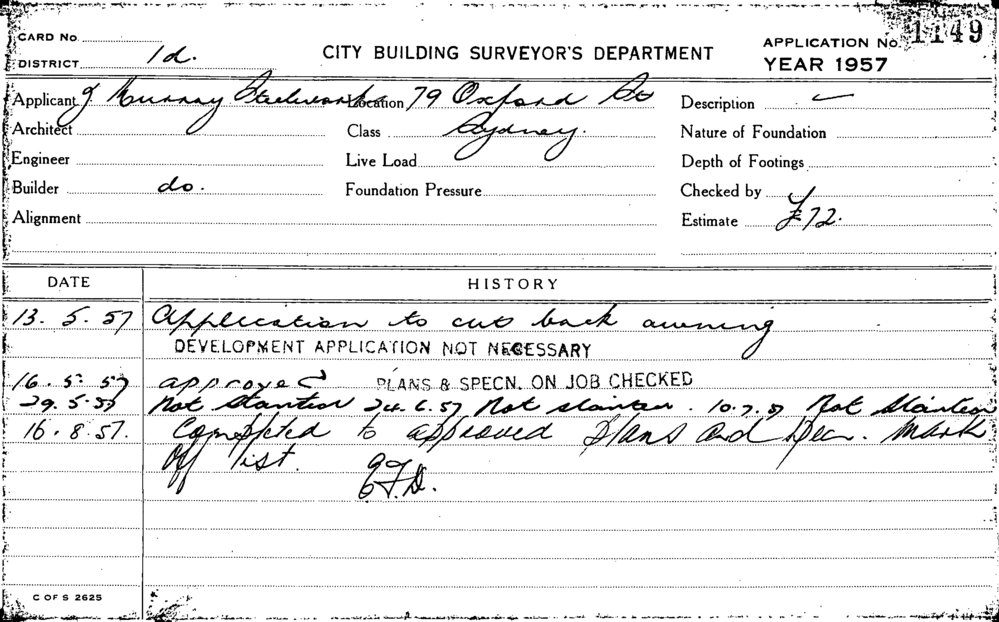 CARD No.
APPLICATION No. 1149
DISTRICT 1d.
CITY BUILDING SURVEYOR'S DEPARTMENT
YEAR 1957
Applicant J Murray Steelworks Location 79 Oxford St Description
Architect Class Sydney. Nature of Foundation
Engineer Live Load Depth of Footings
Builder do. Foundation Pressure Checked by
Alignment Estimate £72.
DATE HISTORY
13. 5. 57 Application to cut back awning
DEVELOPMENT APPLICATION NOT NECESSARY
16. 5. 57 approved PLANS & SPECN. ON JOB CHECKED
29. 5. 57 Not Started 24. 6. 57 Not started. 10. 7. 57 Not Started
16. 8. 57. Completed to approved Plans and Specn. Mark
off list.
C OF S 2625